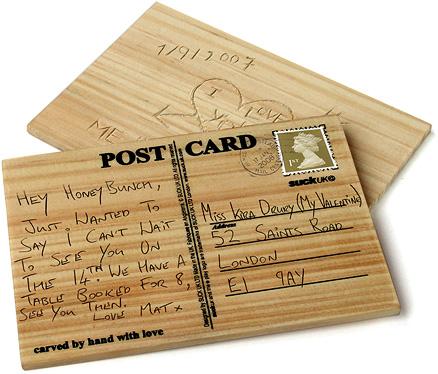 1/9/2007
I LOVE
ME
POST CARD
1ST
SUCKUK
HEY HONEYBUNCH,
JUST WANTED TO
SAY I CAN'T WAIT
TO SEE YOU ON
THE 14TH. WE HAVE A
TABLE BOOKED FOR 8,
SEE YOU THEN.
LOVE MAT X
carved by hand with love
MISS KIRA DRURY (MY VALENTINE)
Address
52 SAINTS ROAD
LONDON
E1 9AY